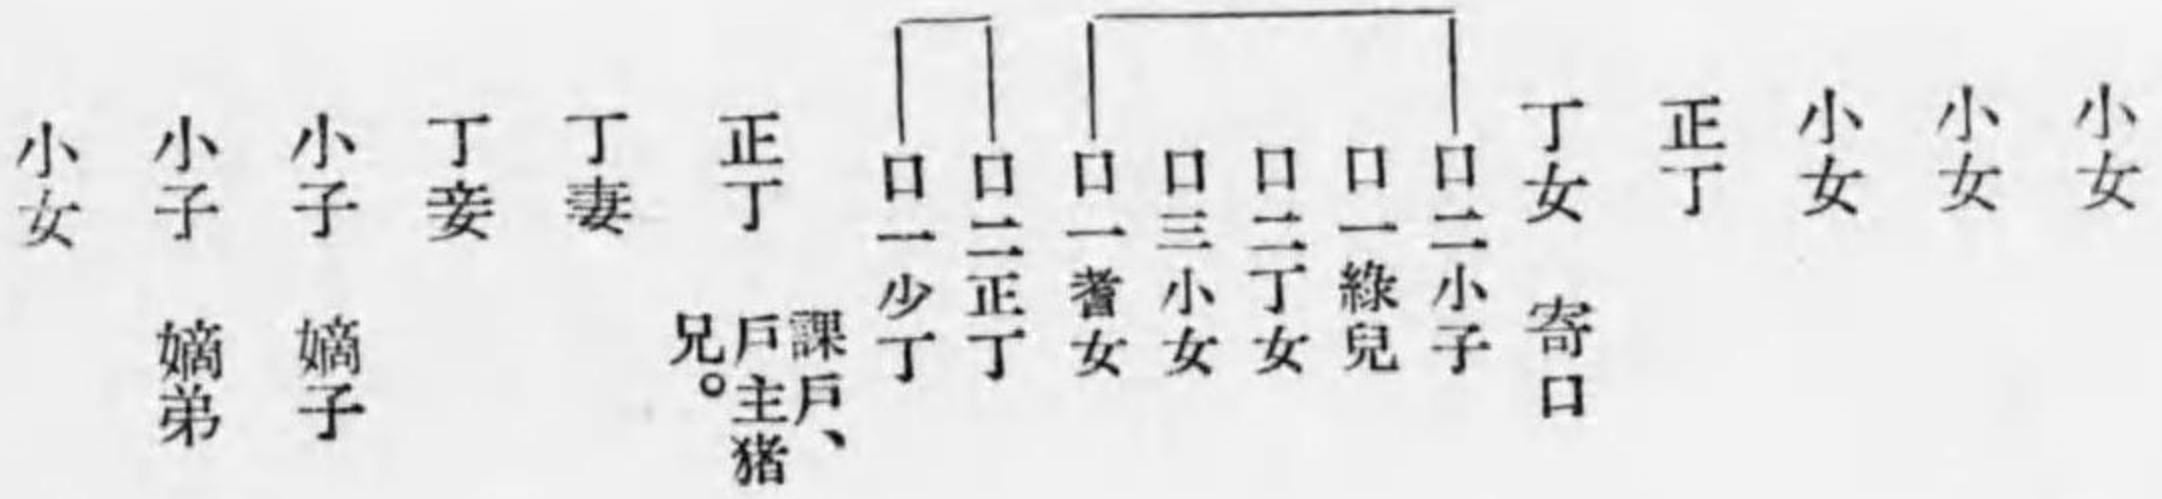 小女
小女
小女
正丁
丁女 寄口
口二小子
口一綠兒
口二丁女
口三小女
口一耆女
口二正丁
口一少丁
正丁 課戶、
戶主猪
兄。
丁妻
丁妾
小子 嫡子
小子 嫡弟
小女